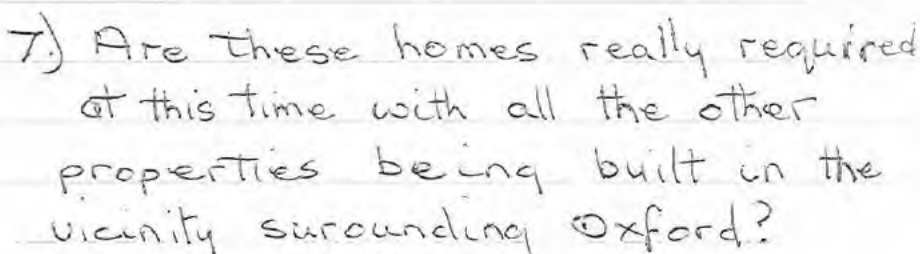 7.) Are these homes really required
at this time with all the other
properties being built in the
vicinity surounding Oxford?